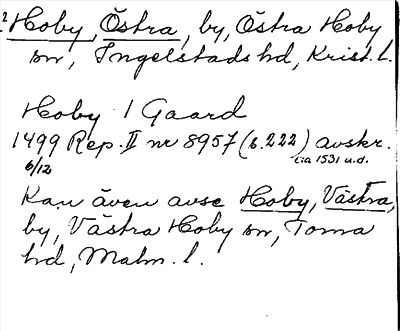 ? Hoby, Östra, by, Östra Hoby
sn, Ingelstads hd, Krist. l.
Hoby 1 Gaard
1499 Rep. II nr 8957 (s. 222) avskr.
6/12 ca 1531 u.d.
Kan även avse Hoby, Västra,
by, Västra Hoby sn, Torna
hd, Malm. l.